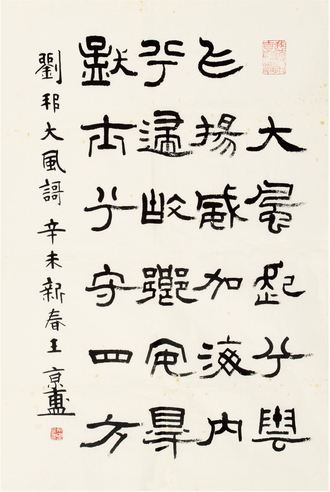 大風起兮雲
飞揚威加海内
兮歸故鄉安得
猛士兮守四方
劉邦大風謌 辛未新春王京盙